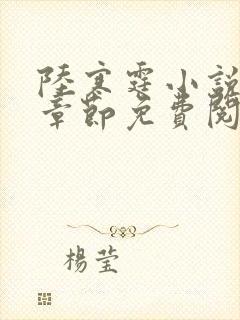 陸寒霆小說
章節免費閱
楊瑩